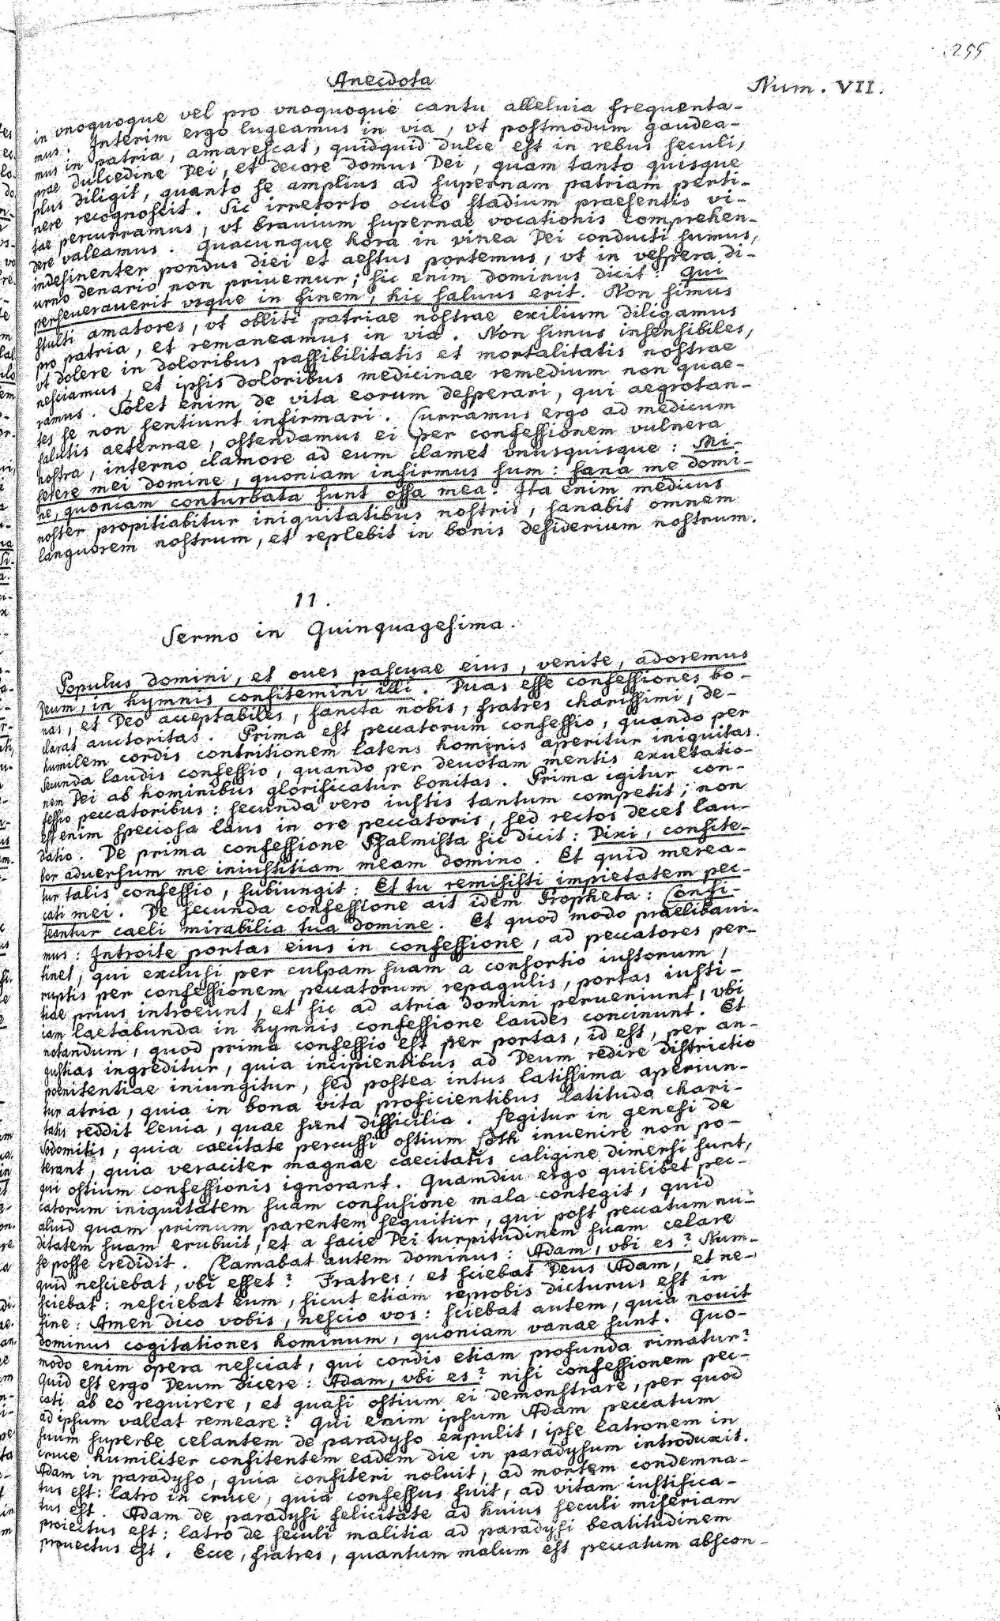 255
Anecdota
Num. VII.
in vnoquoque vel pro vnoquoque cantu alleluia frequenta-
mus. Interim ergo lugeamus in via, vt postmodum gaudea-
mus in patria, amarescat, quidquid dulce est in rebus seculi,
prae dulcedine Dei, et decore domus Dei, quam tanto quisque
plus diligit, quanto se amplius ad supernam patriam perti-
nere recognoscit. Sic irretorto oculo stadium praesentis vi-
tae percurramus, vt brauium supernae vocationis comprehen-
dere valeamus. Quacunque hora in vinea Dei conducti sumus,
indesinenter pondus diei et aestus portemus, vt in vespera di-
urno denario non priuemur; sic enim dominus dicit: Qui
perseuerauerit vsque in finem, hic saluus erit. Non simus
stulti amatores, vt obliti patriae nostrae exilium diligamus
pro patria, et remaneamus in via. Non simus insensibiles,
vt dolere in doloribus passibilitatis et mortalitatis nostrae
nesciamus, et ipsis doloribus medicinae remedium non quae-
ramus. Solet enim de vita eorum desperari, qui aegrotan-
tes se non sentiunt infirmari. Curramus ergo ad medicum
salutis aeternae, ostendamus ei per confessionem vulnera
nostra, interno clamore ad eum clamet vnusquisque: Mi-
serere mei domine, quoniam infirmus sum: sana me domi-
ne, quoniam conturbata sunt ossa mea. Ita enim medicus
noster propitiabitur iniquitatibus nostris, sanabit omnem
languorem nostrum, et replebit in bonis desiderium nostrum.
11.
Sermo in Quinquagesima.
Populus domini, et oues pascuae eius, venite, adoremus
Deum, in hymnis confitemini illi. Duas esse confessiones bo-
nas, et Deo acceptabiles, sancta nobis, fratres charissimi, de-
clarat auctoritas. Prima est peccatorum confessio, quando per
humilem cordis contritionem latens hominis aperitur iniquitas.
Secunda laudis confessio, quando per deuotam mentis exultatio-
nem Dei ab hominibus glorificatur bonitas. Prima igitur con-
fessio peccatoribus: secunda vero iustis tantum competit; non
est enim speciosa laus in ore peccatoris, sed rectos decet lau-
datio. De prima confessione Psalmista sic dicit: Dixi, confite-
bor aduersum me iniustitiam meam domino. Et quid merea-
tur talis confessio, subiungit: Et tu remisisti impietatem pec-
cati mei. De secunda confessione ait idem Propheta: Confi-
teantur caeli mirabilia tua domine. Et quod modo praelibaui-
mus: Introite portas eius in confessione, ad peccatores per-
tinet, qui exclusi per culpam suam a consortio iustorum,
ruptis per confessionem peccatorum repagulis, portas iusti-
tiae prius introeunt, et sic ad atria domini perueniunt, vbi
iam laetabunda in hymnis confessione laudes concinunt. Et
notandum, quod prima confessio est per portas, id est, per an-
gustias ingreditur, quia incipientibus ad Deum redire districtio
poenitentiae iniungitur, sed postea intus latissima aperiun-
tur atria, quia in bona vita proficientibus latitudo chari-
tatis reddit leuia, quae sunt difficilia. Legitur in genesi de
Sodomitis, quia caecitate percussi ostium Loth inuenire non po-
terant, quia veraciter magnae caecitatis caligine dimersi sunt,
qui ostium confessionis ignorant. Quamdiu ergo quilibet pec-
catorum iniquitatem suam confusione mala contegit, quid
aliud quam primum parentem sequitur, qui post peccatum nu-
ditatem suam erubuit, et a facie Dei turpitudinem suam celare
se posse credidit. Clamabat autem dominus: Adam, vbi es? Num-
quid nesciebat, vbi esset? Fratres, et sciebat Deus Adam, et ne-
sciebat: nesciebat eum, sicut etiam reprobis dicturus est in
fine: Amen dico vobis, nescio vos: sciebat autem, quia nouit
dominus cogitationes hominum, quoniam vanae sunt. Quo-
modo enim opera nesciat, qui cordis etiam profunda rimatur?
Quid est ergo Deum dicere: Adam, vbi es? nisi confessionem pec-
cati ab eo requirere, et quasi ostium ei demonstrare, per quod
ad ipsum valeat remeare? Qui enim ipsum Adam peccatum
suum superbe celantem de paradyso expulit, ipse latronem in
cruce humiliter confitentem eadem die in paradysum introduxit.
Adam in paradyso, quia confiteri noluit, ad mortem condemna-
tus est: latro in cruce, quia confessus fuit, ad vitam iustifica-
tus est. Adam de paradysi felicitate ad huius seculi miseriam
proiectus est: latro de seculi malitia ad paradysi beatitudinem
prouectus est. Ecce, fratres, quantum malum est peccatum abscon-